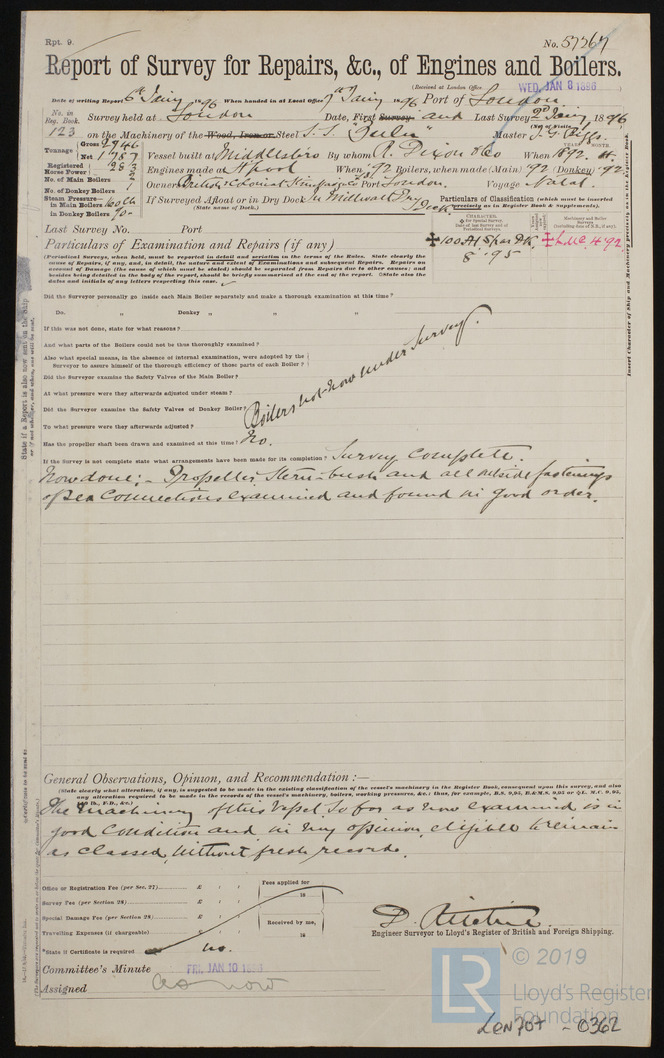 Rpt. 9.
No. 57767
Report of Survey for Repairs, &c., of Engines and Boilers.
(Received at London Office WED. JAN 8 1896
Date of writing Report 6th Jany 1896 When handed in at Local Office 7th Jany 1896 Port of London
No. in Reg. Book. 123 Survey held at London Date, First Survey and Last Survey 2nd Jany 1896
on the Machinery of the Wood, Iron or Steel S.S. "Fulu" Master
Tonnage Gross 2946
Net 1787
Vessel built at Middlesbro By whom R. Dixon & Co When 1892. 4.
Registered Horse Power 283
Engines made at H'pool When '92 Boilers, when made (Main) '92 (Donkey) '92
No. of Main Boilers 2
No. of Donkey Boilers 1
Owners British & Colonial Steam Navgn Co Ld Port London. Voyage Natal.
Steam Pressure in Main Boilers 160 lb
in Donkey Boilers 90
If Surveyed Afloat or in Dry Dock In Millwall Dry Dock
(State name of Dock.)
Particulars of Classification (which must be inserted precisely as in Register Book & Supplements).
Last Survey No. Port
100 A1 Spar Dk
8 . 95
L.M.C. 4 92
Particulars of Examination and Repairs (if any)
(Periodical Surveys, when held, must be reported in detail and seriatim in the terms of the Rules. State clearly the
cause of Repairs, if any, and, in detail, the nature and extent of Examinations and subsequent Repairs. Repairs on
account of Damage (the cause of which must be stated) should be separated from Repairs due to other causes; and
besides being detailed in the body of the report, should be briefly summarised at the end of the report. State also the
dates and initials of any letters respecting this case.
Did the Surveyor personally go inside each Main Boiler separately and make a thorough examination at this time?
Do. " Donkey " " "
If this was not done, state for what reasons?
And what parts of the Boilers could not be thus thoroughly examined?
Also what special means, in the absence of internal examination, were adopted by the
Surveyor to assure himself of the thorough efficiency of those parts of each Boiler?
Did the Surveyor examine the Safety Valves of the Main Boiler?
At what pressure were they afterwards adjusted under steam?
Did the Surveyor examine the Safety Valves of Donkey Boiler?
To what pressure were they afterwards adjusted?
Boilers not now under Survey.
Has the propeller shaft been drawn and examined at this time? No.
If the Survey is not complete state what arrangements have been made for its completion? Survey Complete.
Now done:- Propeller, Stern-bush and all outside fastenings
of Sea Connections examined and found in good order.
General Observations, Opinion, and Recommendation :—
(State clearly what alteration, if any, is suggested to be made in the existing classification of the vessel's machinery in the Register Book, consequent upon this survey, and also
any alteration required to be made in the records of the vessel's machinery, boilers, working pressures, &c.; thus, for example, B.S. 9,95, B.&M.S. 9,95 or L.M.C. 9,95,
The machinery of this Vessel so far as now examined is in
good condition and in my opinion eligible to remain
as classed, without fresh record.
Office or Registration Fee (per Sec. 27) £
Survey Fee (per Section 28) £
Special Damage Fee (per Section 28) £
Travelling Expenses (if chargeable) £
Fees applied for
18
Received by me,
18
*State if Certificate is required no.
D. Ritchie.
Engineer Surveyor to Lloyd's Register of British and Foreign Shipping.
Committee's Minute FRI. JAN 10 1896
Assigned as now
LR
© 2019
Lloyd's Register
Foundation
LON707 - 0362